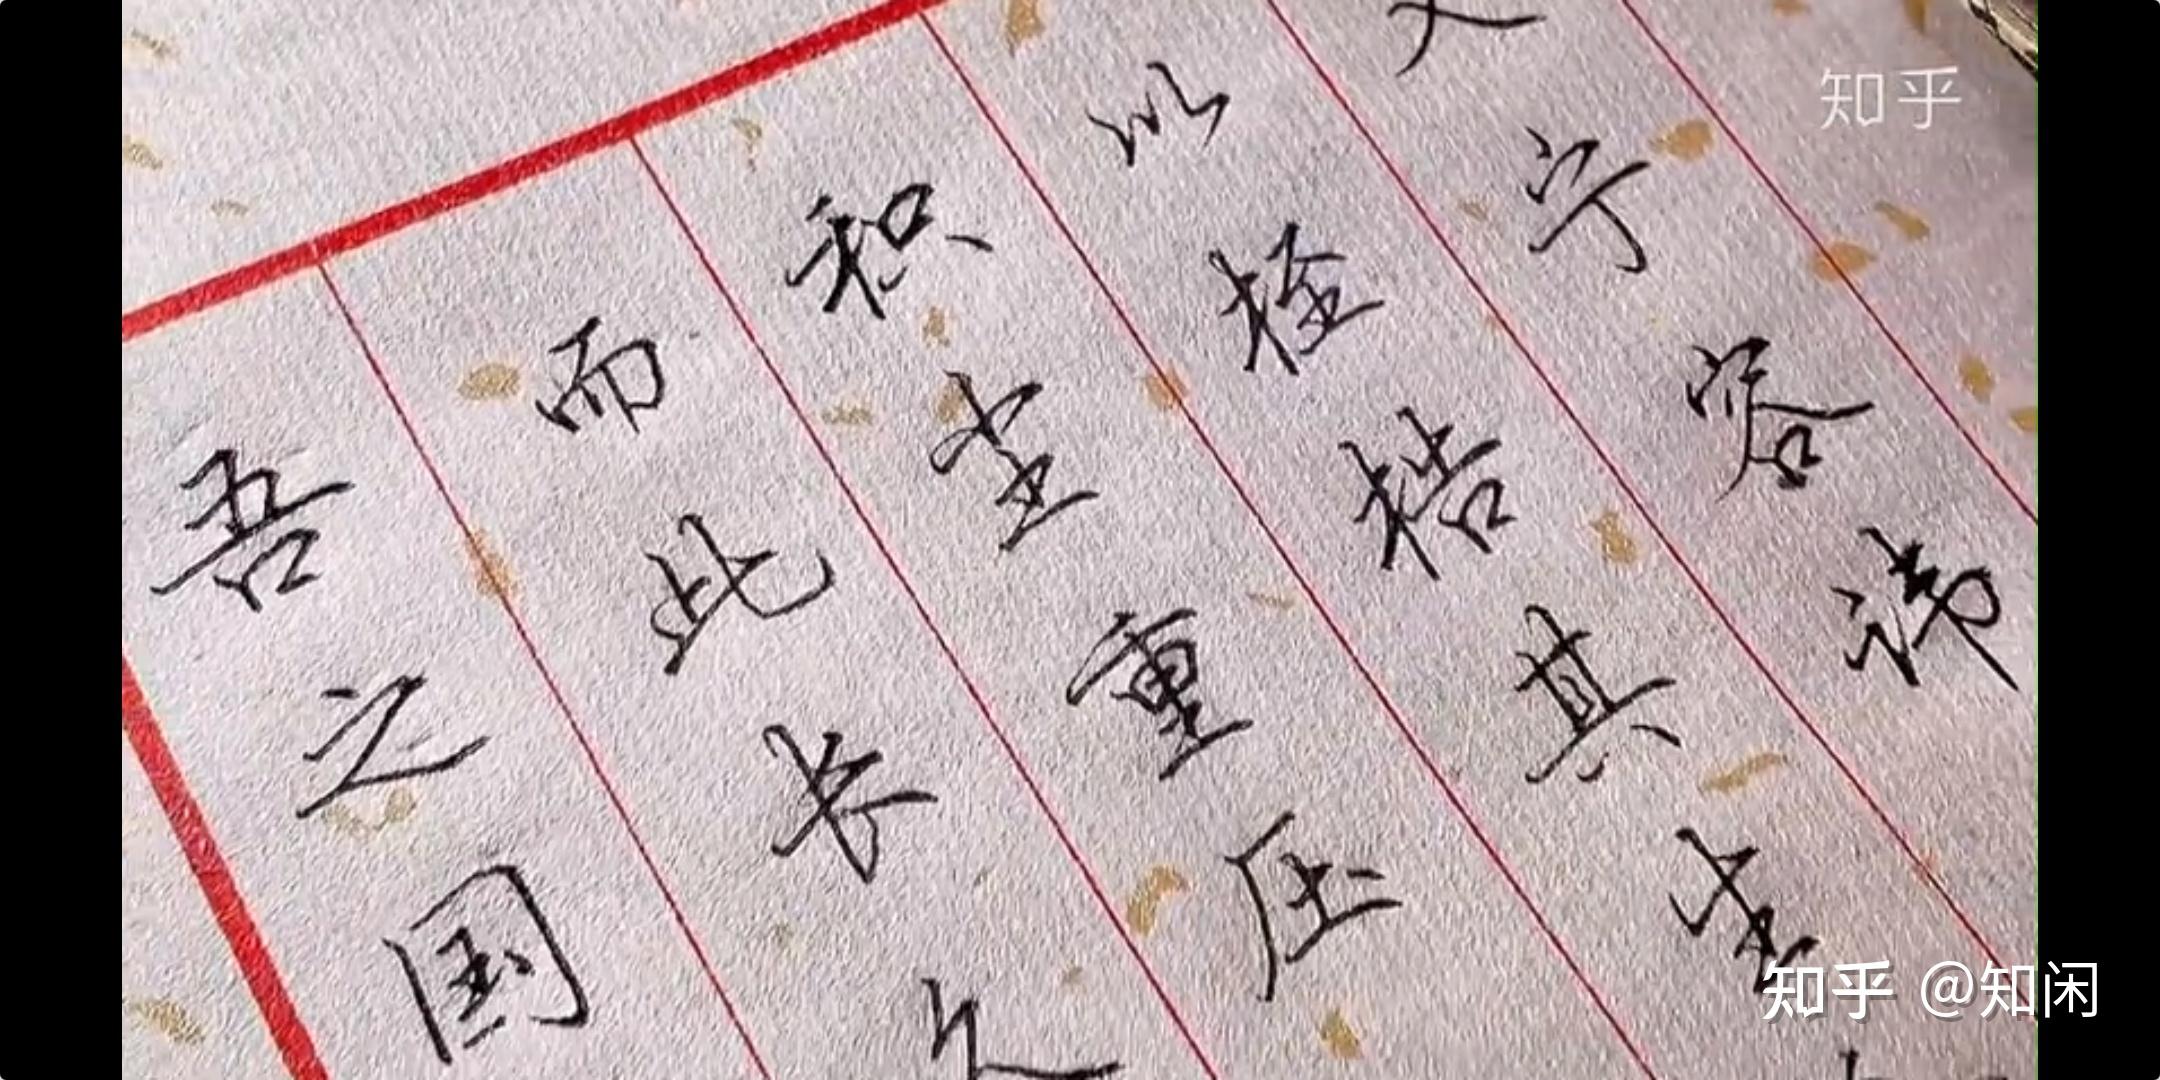 宁容讳
以桎梏其生
积尘重压
而此长久
吾之国
知乎
知乎 @知闲